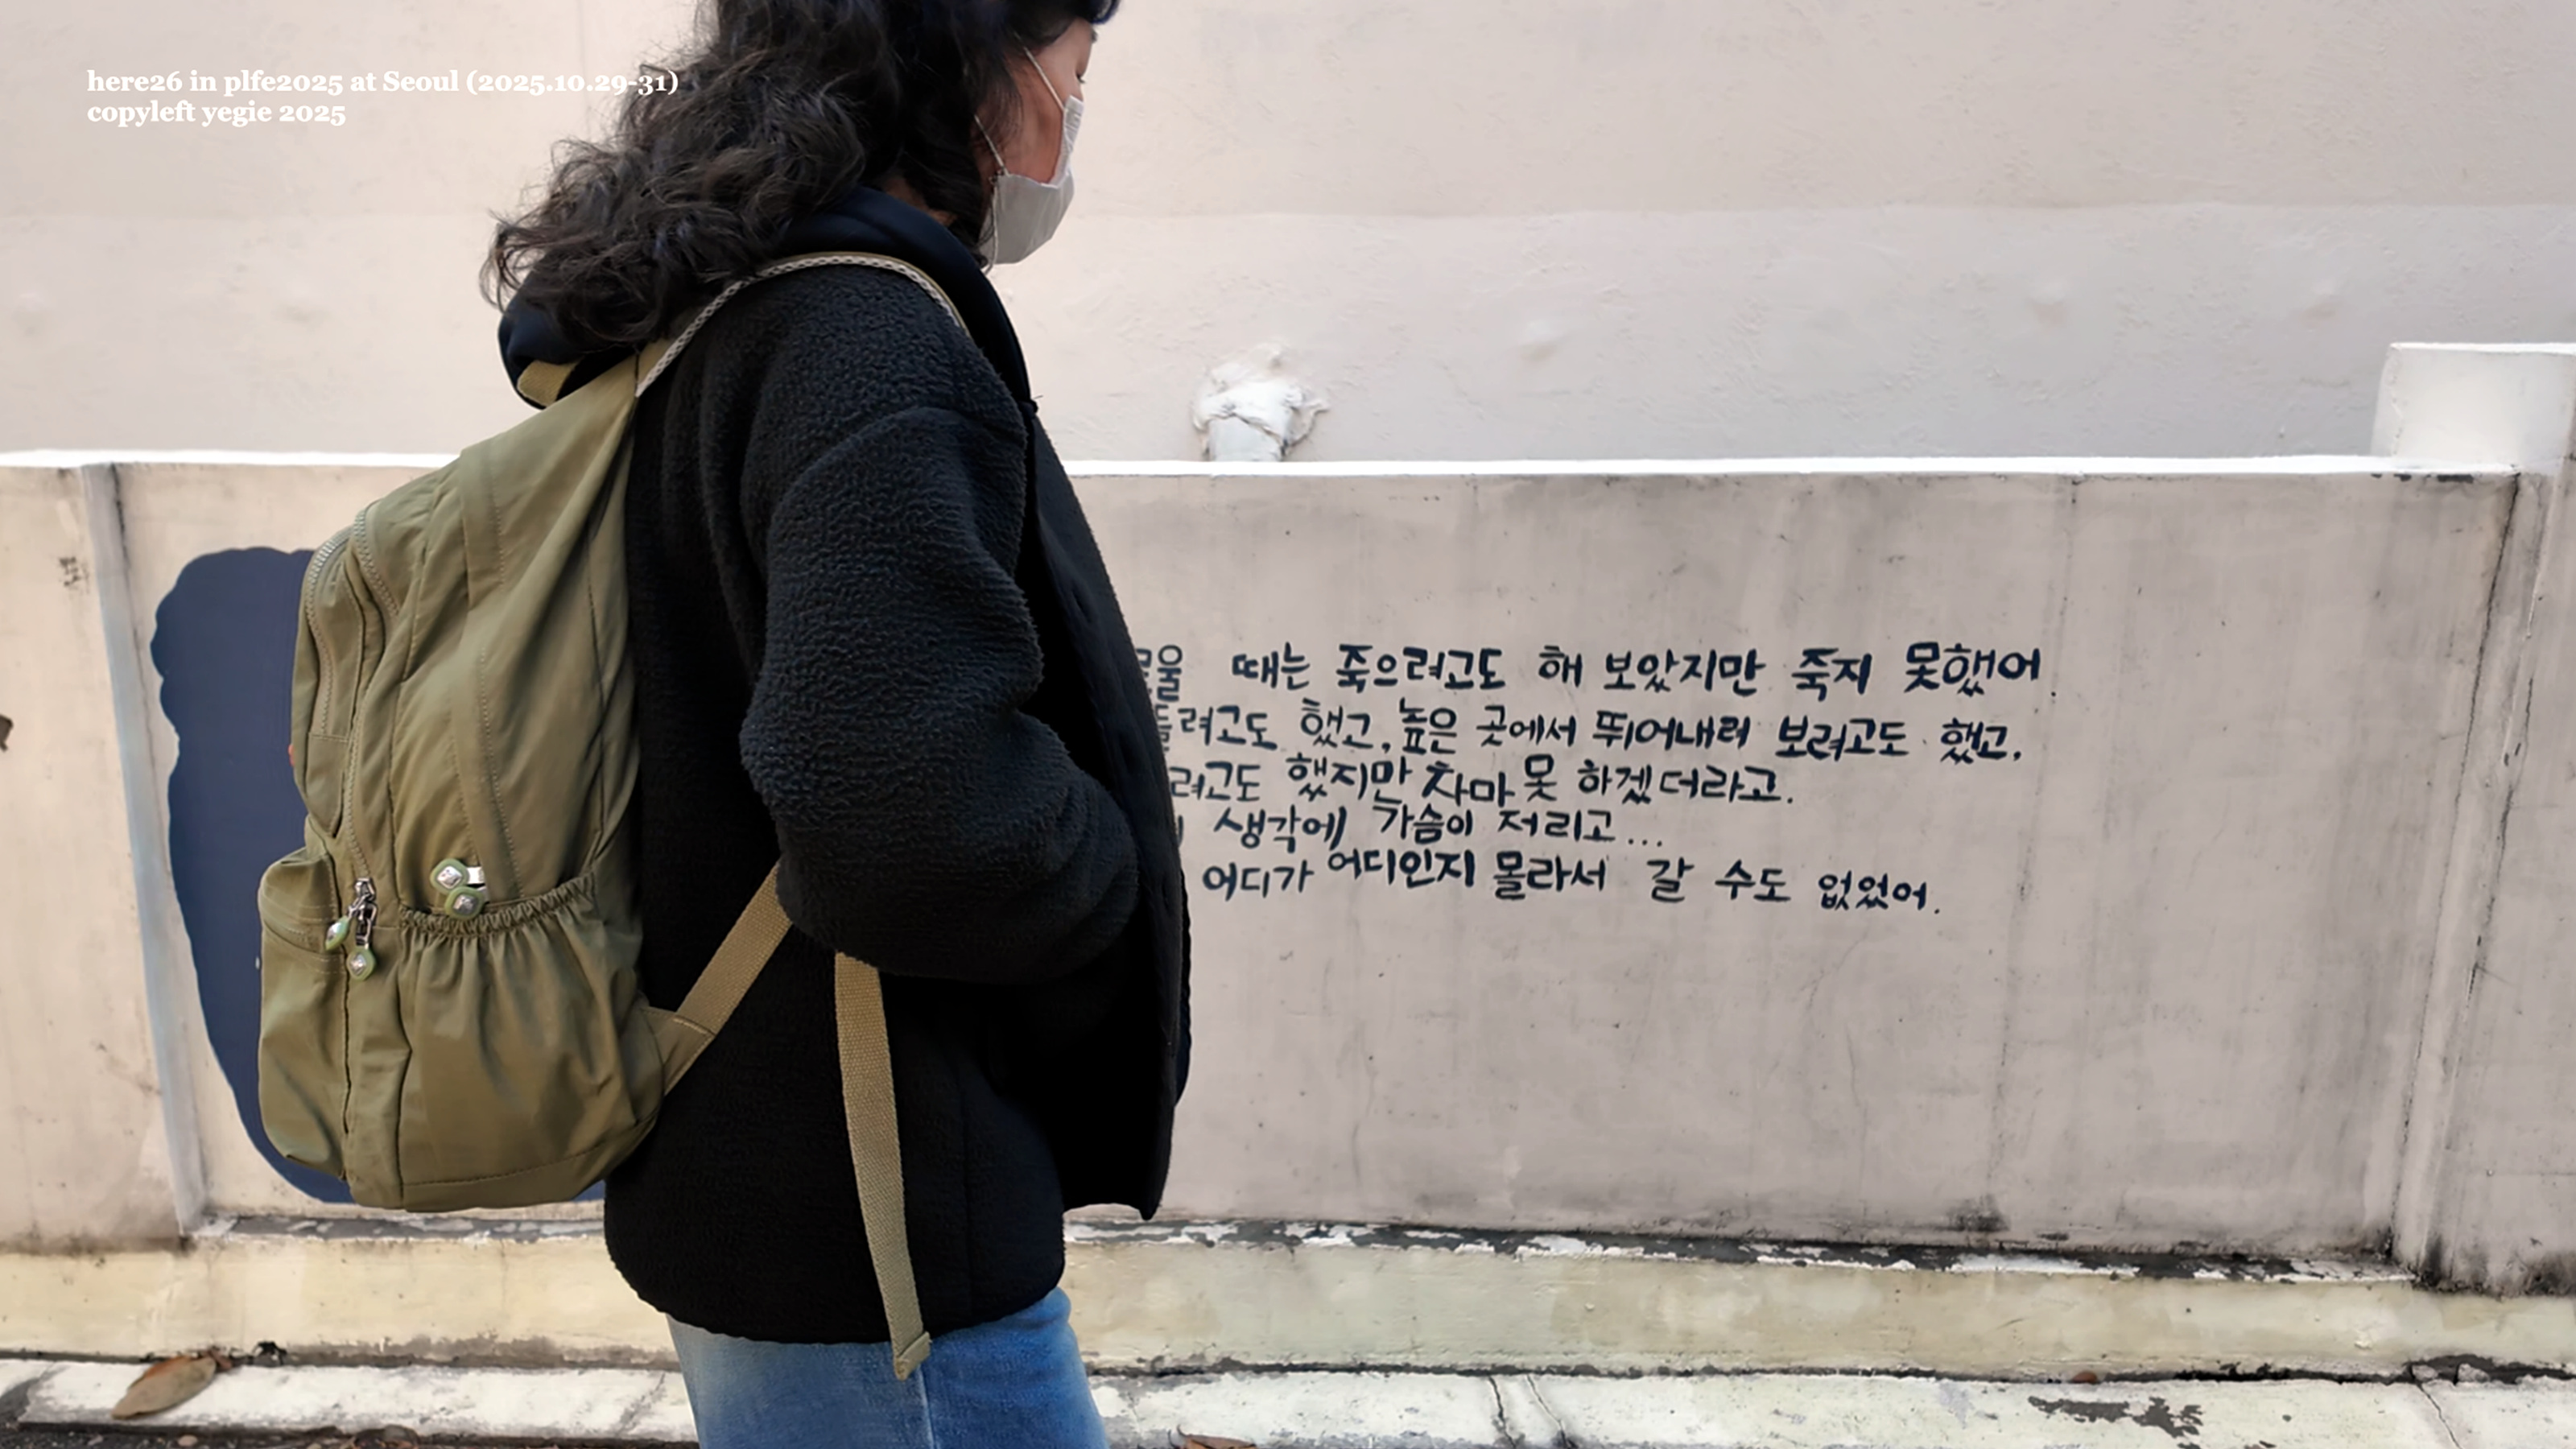 here26 in plfe2025 at Seoul (2025.10.29-31)
copyleft yegie 2025
때는 죽으려고도 해 보았지만 죽지 못했어.
려고도 했고, 높은 곳에서 뛰어내려 보려고도 했고.
려고도 했지만 차마 못 하겠더라고.
생각에 가슴이 저리고...
어디가 어디인지 몰라서 갈 수도 없었어.